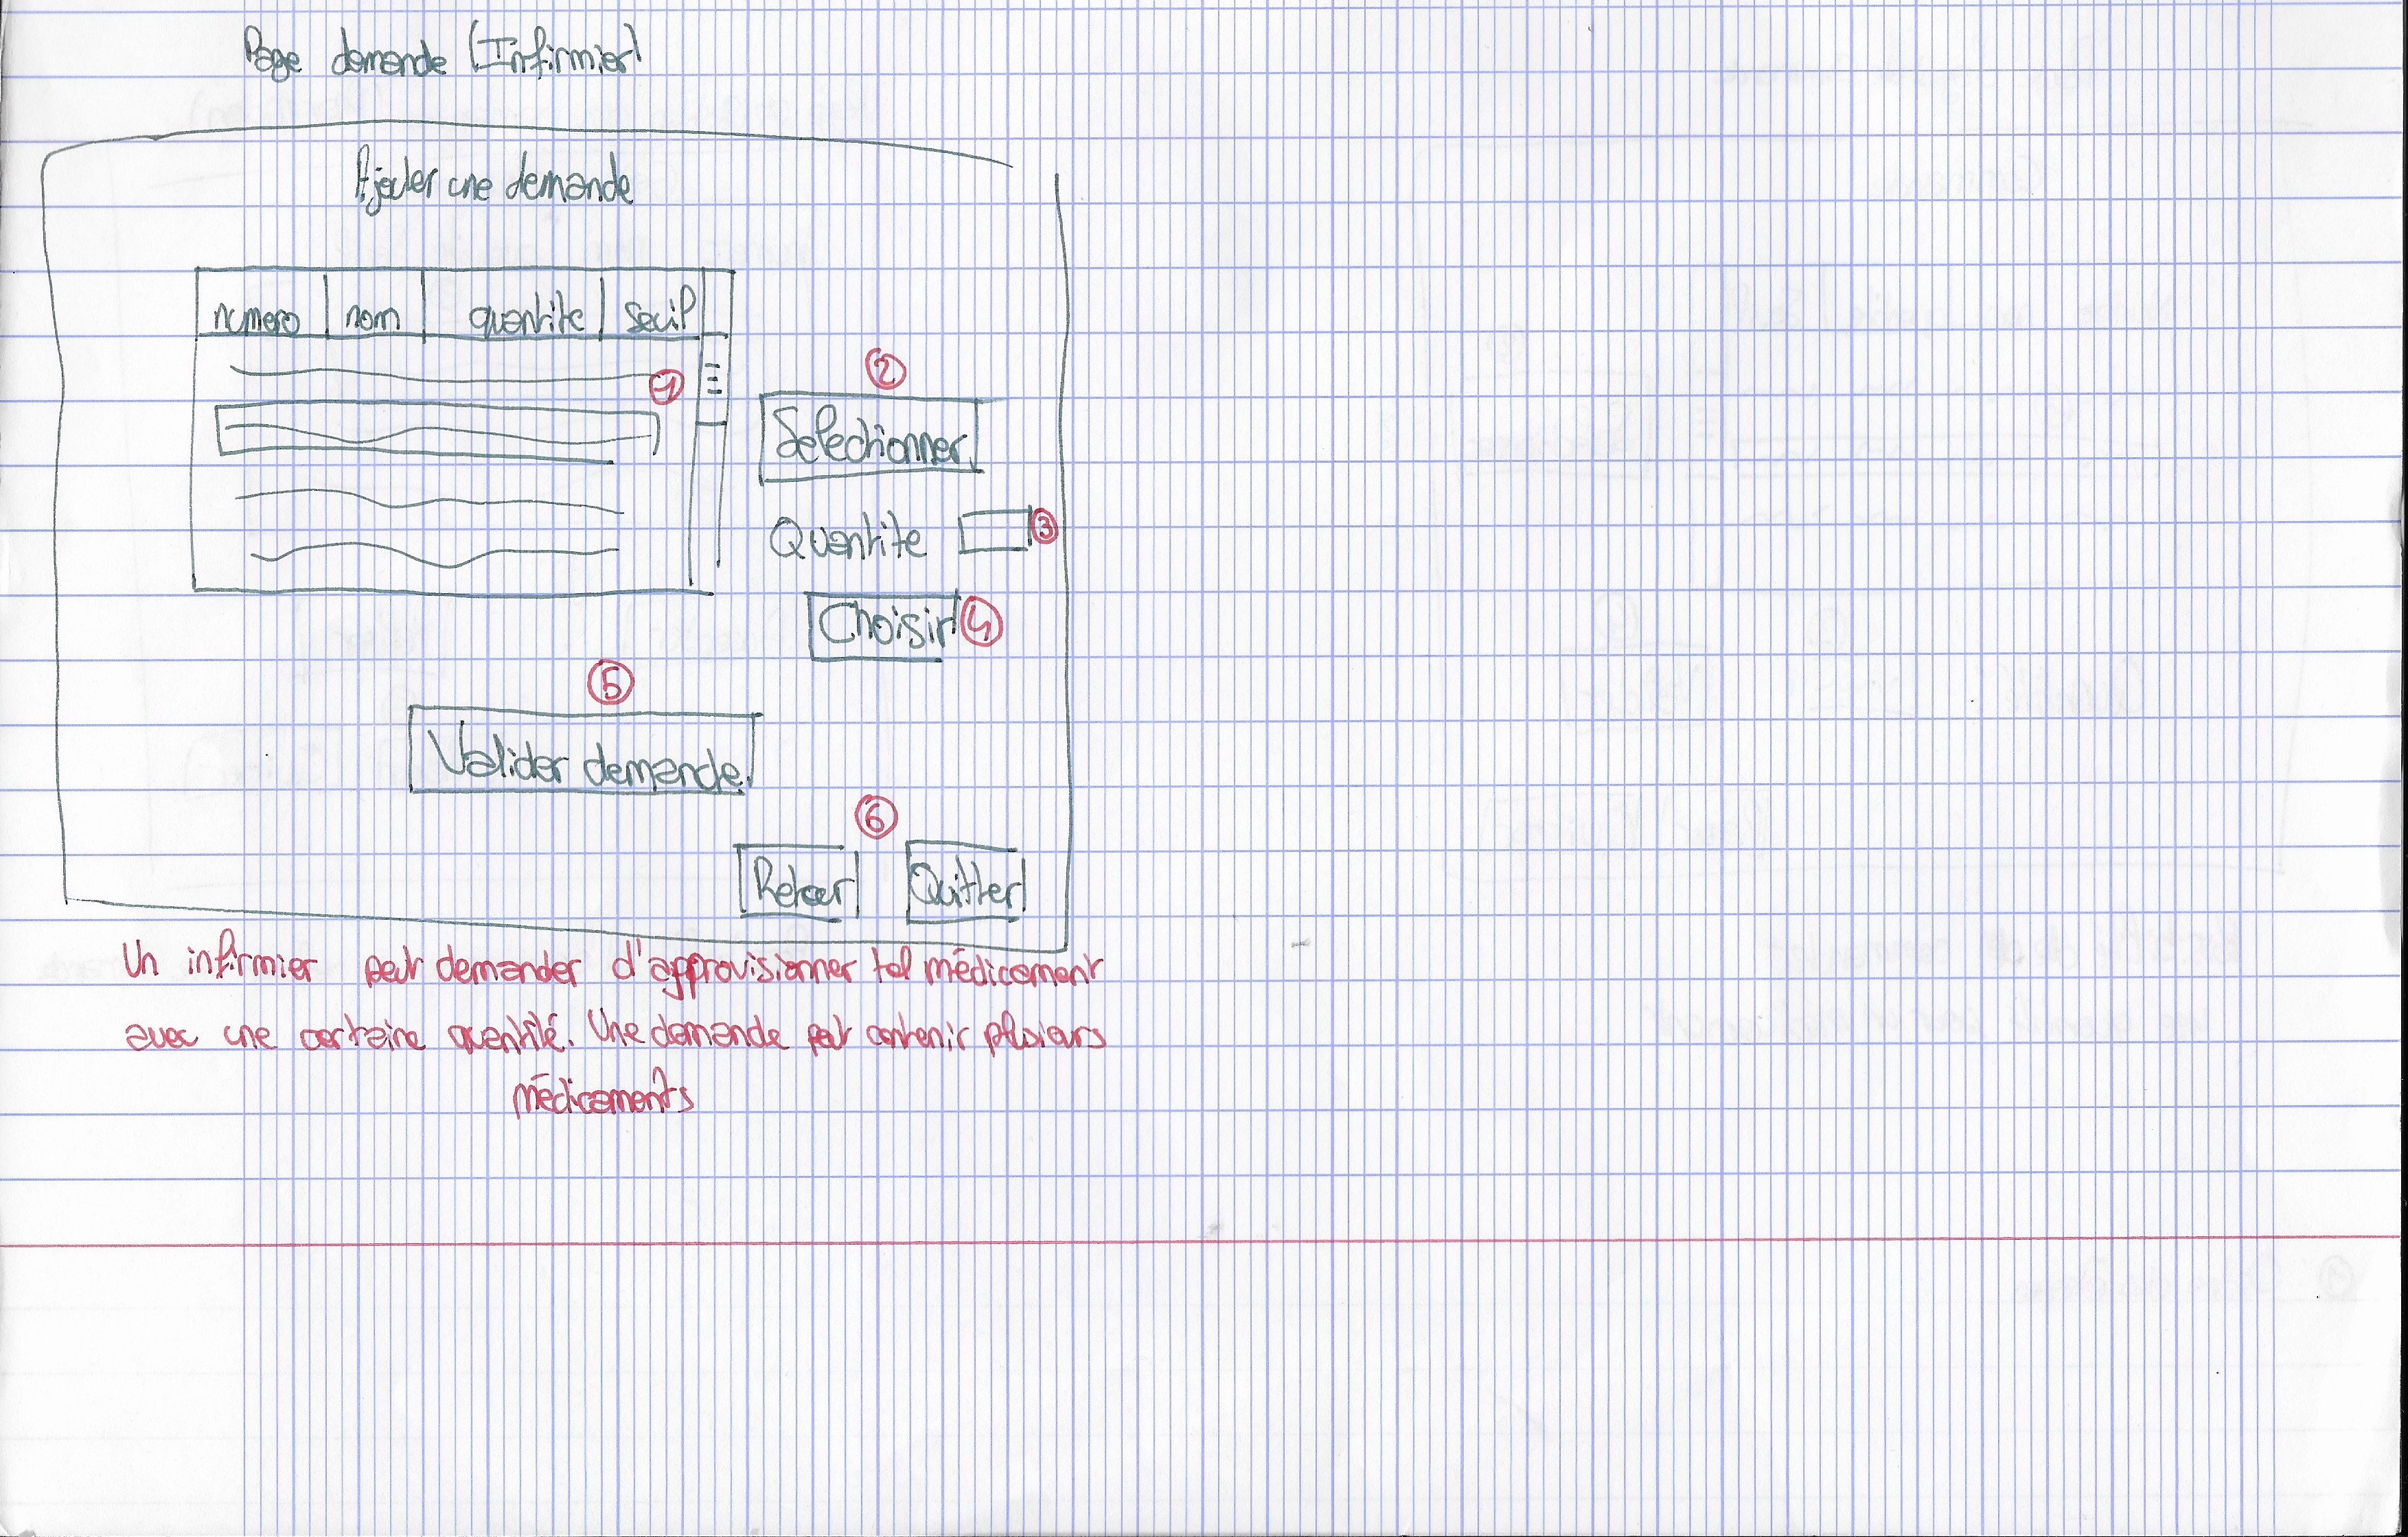 Page demande (Infirmier)
Ajouter une demande
numero nom quantite seuil
1
2
Selectionner
Quantite 3
Choisir 4
5
Valider demande
6
Retour Quitter
Un infirmier peut demander d'approvisionner tel médicament
avec une certaine quantité. Une demande peut contenir plusieurs
médicaments